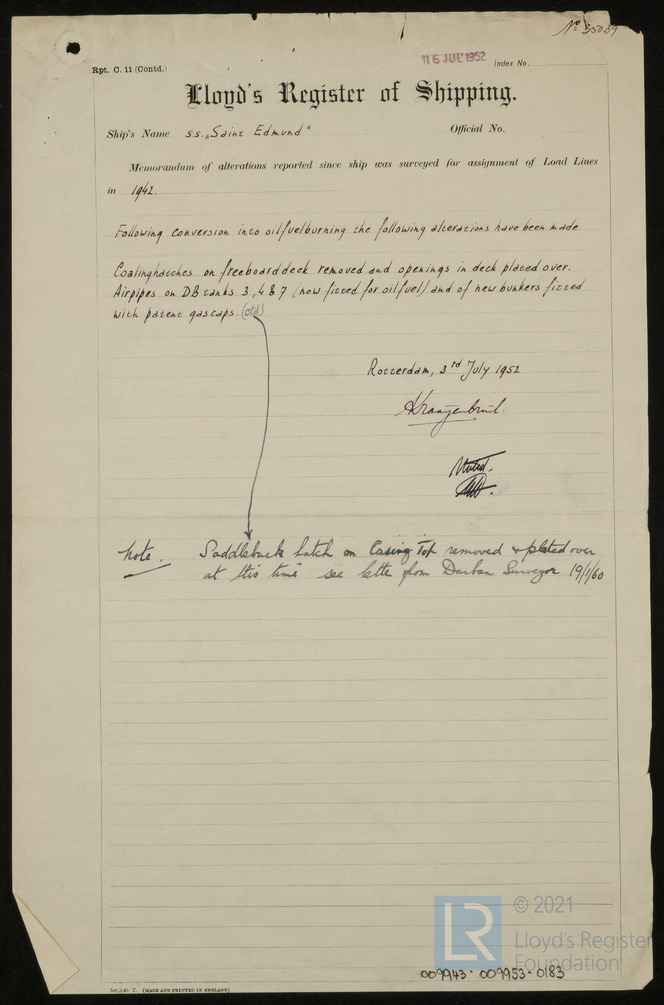 No 35039
16 JUL 1952
Rpt. C. 11 (Contd.)
Index No.
Lloyd's Register of Shipping.
Ship's Name s.s. „Saint Edmund"
Official No.
Memorandum of alterations reported since ship was surveyed for assignment of Load Lines
in 1942.
Following conversion into oilfuelburning the following alterations have been made
Coalinghatches on freeboarddeck removed and openings in deck plated over.
Airpipes on DB tanks 3, 4 & 7 (now fitted for oilfuel) and of new bunkers fitted
with patent gascaps.
Rotterdam, 3rd July 1952
Noted.
Note. Saddleback hatch on Casing Top removed & plated over
at this time see letter from Durban Surveyor 19/1/60
© 2021
LR
Lloyd's Register
Foundation
009943-009953-0183
(MADE AND PRINTED IN ENGLAND)